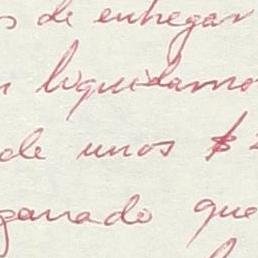 s de entregar
liquidamo
de unos $
ganado que